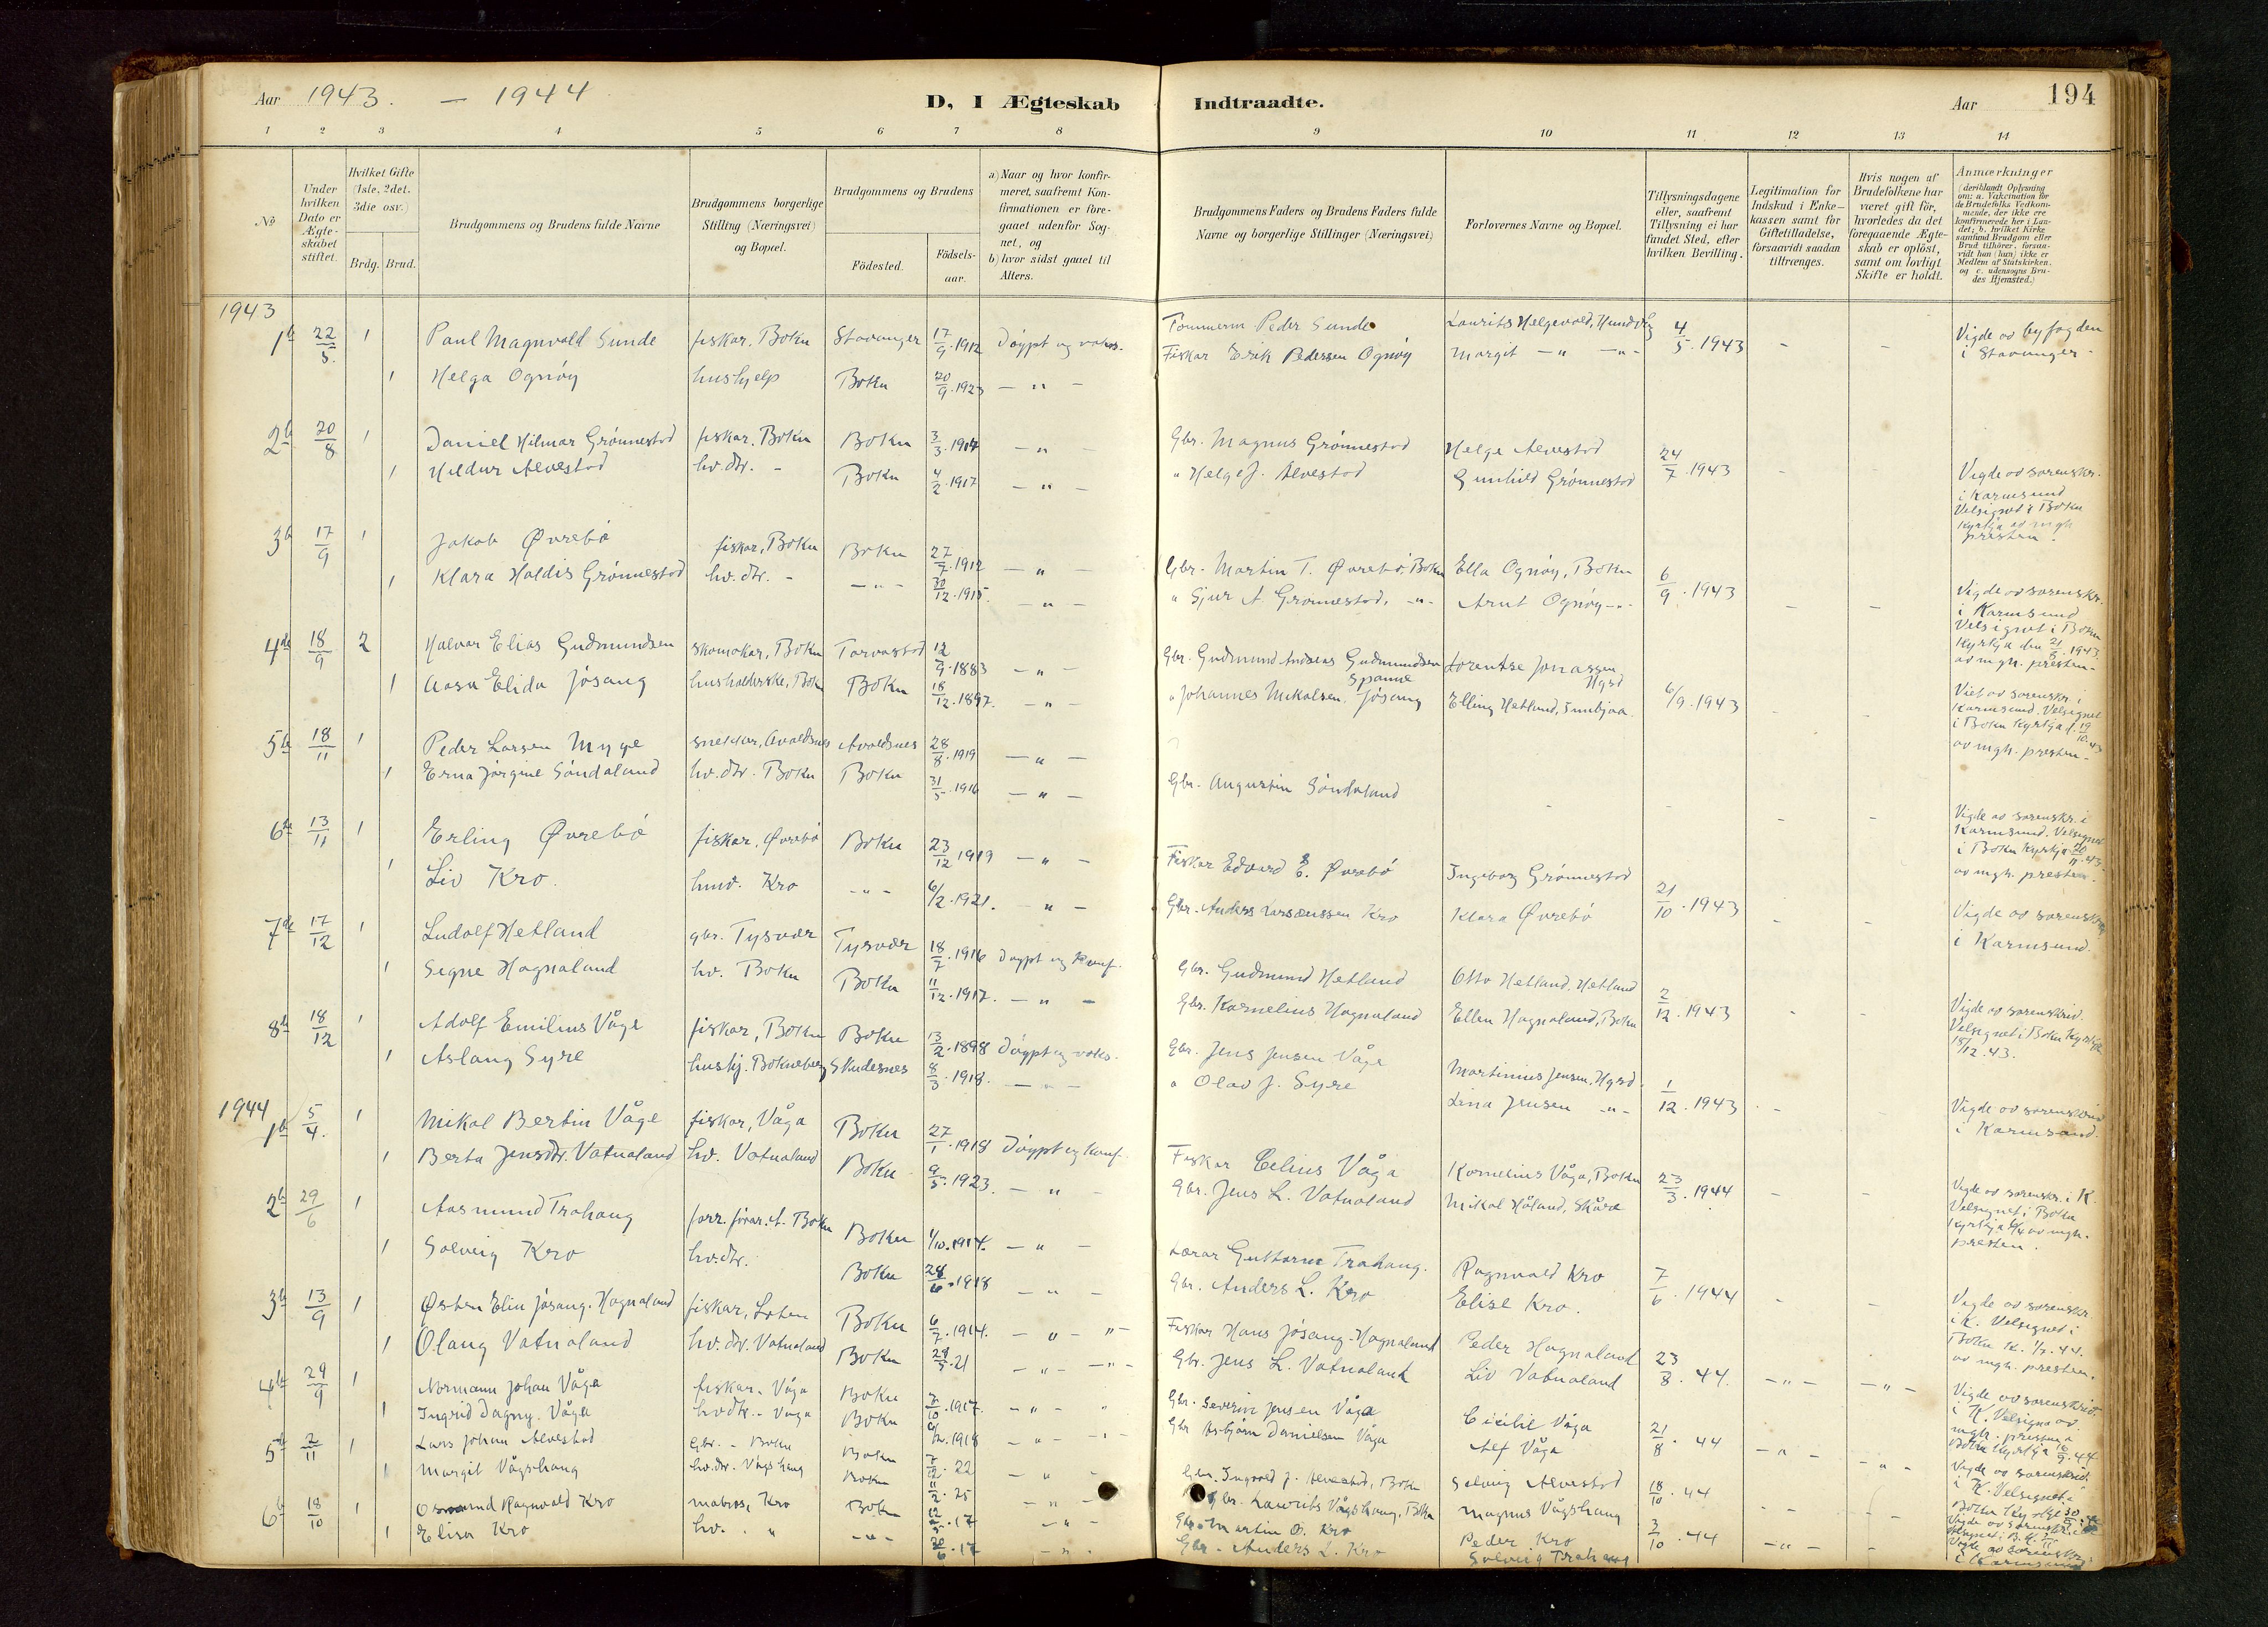 Aar 1943. — 1944
D, I Ægteskab Indtraadte.
Aar 194
1 2 3 4 5 6 7 8 9 10 11 12 13 14
No
Under hvilken Dato er Ægteskabet stiftet.
Hvilket Gifte (1ste, 2det, 3die osv.)
Brdg. Brud.
Brudgommens og Brudens fulde Navne
Brudgommens borgerlige Stilling (Næringsvei) og Bopæl.
Brudgommens og Brudens
Fødested.
Fødselsaar.
a) Naar og hvor konfirmeret, saafremt Konfirmationen er foregaaet udenfor Sognet, og
b) hvor sidst gaaet til Alters.
Brudgommens Faders og Brudens Faders fulde Navne og borgerlige Stillinger (Næringsvei)
Forlovernes Navne og Bopæl.
Tillysningsdagene eller, saafremt Tillysning ei har fundet Sted, efter hvilken Bevilling.
Legitimation for Indskud i Enkekassen samt for Giftetilladelse, forsaavidt saadan tiltrænges.
Hvis nogen af Brudefolkene har været gift før, hvorledes da det foregaaende Ægteskab er opløst, samt om lovligt Skifte er holdt.
Anmærkninger
(deriblandt Oplysning om: a. Vakcination for de Brudefolks Vedkommende, der ikke ere konfirmerede her i Landet; b. hvilket Kirkesamfund Brudgom eller Brud tilhører, forsaavidt han (hun) ikke er Medlem af Statskirken, og c. udensogns Brudes Hjemsted.)
1943
1 22/5 1 Paul Magnvald Sunde fiskar, Bokn Stavanger 17/9.1912 Døypt og vaks. Tømmerm Peder Sunde Laurits Helgevold, Hundvåg 4/5.1943 - - Vigde av byfogden i Stavanger.
1 Helga Ognøy hushjelp Bokn 20/9.1923 — " — Fiskar Erik Pedersen Ognøy Margit — " — " -
2 20/8 1 Daniel Hilmar Grønnestad fiskar, Bokn Bokn 3/3.1914 — " — Gbr. Magnus Grønnestad Helge Alvestad 24/7.1943 - - Vigde av sorenskr. i Karmsund Velsignet i Bokn Kyrkja av mgh. presten.
1 Hildur Alvestad hv.dtr. - Bokn 4/2.1917 — " — " Helge J. Alvestad Gunhild Grønnestad
3 17/9 1 Jakob Øvrebø fiskar, Bokn Bokn 27/7.1912 — " — Gbr. Martin T. Øvrebø, Bokn Ella Ognøy, Bokn 6/9.1943 - - Vigde av sorenskr. i Karmsund Velsignet i Bokn Kyrkja den 21/8.1943 av mgh. presten.
1 Klara Haldis Grønnestad hv.dtr. - - " - 30/12.1915. — " — " Sjur A. Grønnestad, - " - Arnt Ognøy - " -
4de 18/9 2 Halvar Elias Gudmundsen skomakar, Bokn Torvastad 12/9.1883 — " — Gbr. Gudmund Andreas Gudmundsen Spanne Lorentse Jonassen Hgsd 6/9.1943 - - Viet av sorenskr. i Karmsund. Velsignet i Bokn Kyrkja d. 19/10.43 av mgh. presten.
1 Aasa Elida Jøsang husholderske, Bokn Bokn 18/12.1897. — " — " Johannes Mikalsen Jøsang Elling Hetland, Innbjoa.
5 18/11 1 Peder Larsen Myge snekkar, Avaldsnes Avaldsnes 28/8.1919 — " —
1 Erna Jørgine Søndaland hv.dtr. Bokn Bokn 31/5.1916 — " — Gbr. Augustin Søndaland - - - - Vigde av sorenskr. i Karmsund. Velsignet i Bokn Kyrkja 20/11.43 av mgh. presten.
6te 13/11 1 Erling Øvrebø fiskar, Øvrebø Bokn 23/12 1919 — " — Fiskar Edvard E. Øvrebø Ingeborg Grønnestad 21/10.1943 - - Vigde av sorenskr. i Karmsund.
1 Liv Kro. hmd. Kro - " - 6/2.1921. — " — Gbr. Anders Larsenssen Kro Klara Øvrebø
7de 17/12 1 Ludolf Hetland gbr. Tysvær Tysvær 18/7.1916 Døypt og konf. Gbr. Gudmund Hetland Otto Hetland, Hetland 2/12.1943 - - Vigde av sorenskriv. Velsignet i Bokn Kyrkje 18/12.43.
1 Signe Hognaland hv. Bokn Bokn 11/12.1917. — " — Gbr. Kornelius Hognaland Ellen Hognaland, Bokn
8 18/12 1 Adolf Emilius Våge fiskar, Bokn Bokn 13/2.1898 Døypt og vaks. Gbr. Jens Jensen Våge Martinius Jensen, Hgsd. 1/12.1943 - - Vigde av sorenskriv. i Karmsund.
1 Aslaug Syre hushj. Bokneberg Skudesnes 8/3.1918. — " — " Olav J. Syre Lina Jensen - " -
1944
1 5/4. 1 Mikal Bertin Våge fiskar, Våga Bokn 27/1.1918 Døypt og konf. Fiskar Celius Våga Kornelius Våga, Bokn 23/3.1944 - - Vigde av sorenskr. i K. Velsignet i Bokn Kyrkja 6/4 av mgh. presten.
1 Berta Jensdtr. Vatnaland hv. Vatnaland Bokn 9/5.1923. — " — Gbr. Jens L. Vatnaland Mikal Håland, Skåre
2 29/6 1 Aasmund Trahaug Bokn Bokn 1/10.1914. — " — Lærar Guttorm Trahaug. Ragnvald Kro 7/6.1944 - - Vigde av sorenskr. i K. Velsignet i Bokn K. 1/7.44. av mgh. presten.
1 Solveig Kro hv.dtr. Bokn 28/6.1918 — " — Gbr. Anders L. Kro Elise Kro.
3 13/9 1 Østen Elin Jøsang-Hognaland fiskar, Loten Bokn 6/7.1914. — " — " — Fiskar Hans Jøsang-Hognaland Peder Hognaland 23/8.44. — " — — " — Vigde av sorenskriv. i K. Velsigna av mgh. presten i Bokn Kyrkja 16/9.44
1 Olaug Vatnaland hv.dtr. Vatnaland Bokn 28/5.21 — " — " — Gbr. Jens L. Vatnaland Liv Vatnaland
4 29/9 1 Normann Johan Våga fiskar. Våga Bokn 7/10.1917. - " - " Gbr. Severin Jensen Våga Cicilie Våga 21/8.44 — " — — " — Vigde av sorenskriv. i K. Velsignet i Bokn Kyrkje 30/9
1 Ingrid Dagny Våga hv.dtr. - Våga Bokn 1918 - " - Gbr Asbjørn Danielsen Våga Alf Våga
5te 2/11 1 Lars Johan Alvestad Gbr. - Bokn Bokn 7/12.22 — " — Gbr. Ingvald J. Alvestad, Bokn Solveig Alvestad 18/10.44 - - - Vigde av sorenskr. i
1 Margit Vågshaug hv.dtr. Vågshaug Bokn 11/2.25 — " — Gbr. Laurits Vågshaug, Bokn Magnus Vågshaug
6 18/10 1 Osmund Ragnvald Kro matros, Kro Bokn 12/5.17 — " — Gbr. Martin O. Kro Peder Kro 3/10.44 — " — - Vigde av sorenskriv. i Karmsund
1 Elisa Kro hv. " - " - 30/6.17 - " - Gbr. Anders L. Kro Solveig Trahaug